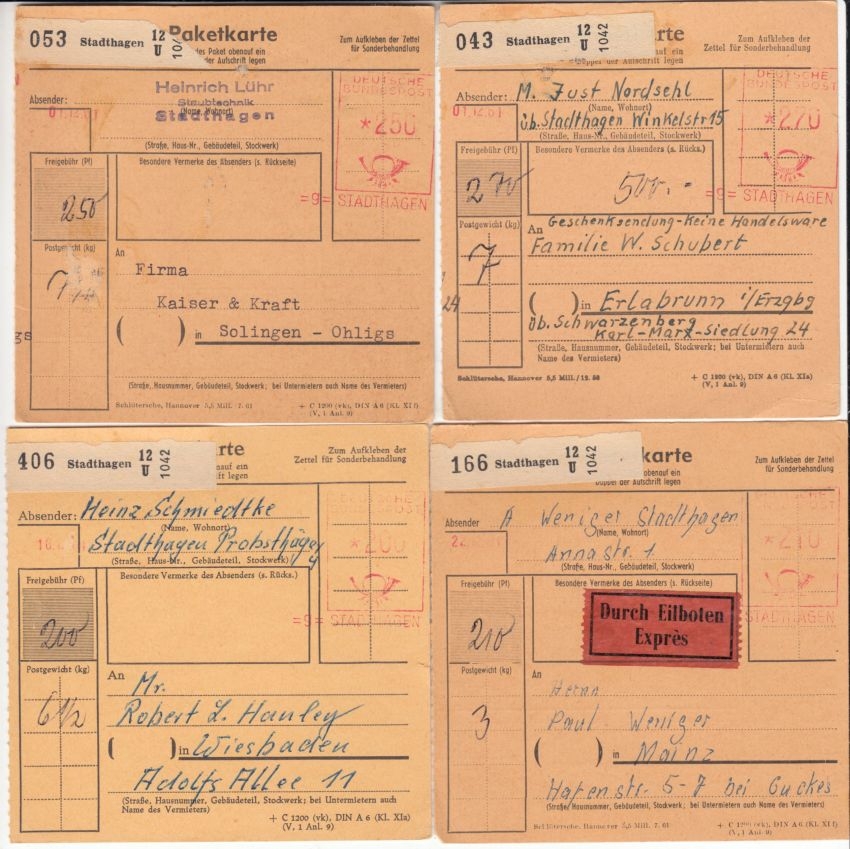 053 Stadthagen 12 U
Paketkarte
Zum Aufkleben der
Zettel für Sonderbehandlung
der Aufschrift legen
Absender:
Heinrich Lühr
Staubtechnik
(Name, Wohnort)
Stadthagen
(Straße, Haus-Nr., Gebäudeteil, Stockwerk)
01.12.61
DEUTSCHE
BUNDESPOST
*250
=9= STADTHAGEN
Freigebühr (Pf)
250
Besondere Vermerke des Absenders (s. Rückseite)
Postgewicht (kg)
7
An
Firma
Kaiser & Kraft
( ) in Solingen - Ohligs
(Straße, Hausnummer, Gebäudeteil, Stockwerk; bei Untermietern auch Name des Vermieters)
Schlütersche, Hannover 5,5 Mill. 7. 61
+ C 1200 (vk), DIN A 6 (Kl. XI f)
(V, 1 Anl. 9)
043 Stadthagen 12 U 1042
karte
Zum Aufkleben der
Zettel für Sonderbehandlung
Doppel der Aufschrift legen
Absender: M. Just Nordsehl
(Name, Wohnort)
üb. Stadthagen Winkelstr 15
(Straße, Haus-Nr., Gebäudeteil, Stockwerk)
01.12.61
DEUTSCHE
BUNDESPOST
*270
=9= STADTHAGEN
Freigebühr (Pf)
270
Besondere Vermerke des Absenders (s. Rücks.)
500.-
Postgewicht (kg)
7
Geschenksendung-Keine Handelsware
An
Familie W. Schubert
24
( ) in Erlabrunn i/Erzgbg
üb. Schwarzenberg
Karl-Marx-Siedlung 24
(Straße, Hausnummer, Gebäudeteil, Stockwerk; bei Untermietern auch
Name des Vermieters)
Schlütersche, Hannover 5,5 Mill. / 12. 58
+ C 1200 (vk), DIN A 6 (Kl. XIa)
(V, 1 Anl. 9)
406 Stadthagen 12 U 1042
karte
Zum Aufkleben der
Zettel für Sonderbehandlung
obenauf ein
der Aufschrift legen
Absender: Heinz Schmiedtke
(Name, Wohnort)
Stadthagen
(Straße, Haus-Nr., Gebäudeteil, Stockwerk)
4
DEUTSCHE
*200
=9= STADTHAGEN
Freigebühr (Pf)
200
Besondere Vermerke des Absenders (s. Rücks.)
Postgewicht (kg)
6 1/2
An
Mr.
Robert L. Hanley
( ) in Wiesbaden
Adolfs Allee 11
(Straße, Hausnummer, Gebäudeteil, Stockwerk; bei Untermietern auch
Name des Vermieters)
+ C 1200 (vk), DIN A 6 (Kl. XIa)
(V, 1 Anl. 9)
166 Stadthagen 12 U 1042
karte
Zum Aufkleben der
Zettel für Sonderbehandlung
obenauf ein
Doppel der Aufschrift legen
Absender A Weniger Stadthagen
(Name, Wohnort)
Annastr. 1
(Straße, Haus-Nr., Gebäudeteil, Stockwerk)
*210
STADTHAGEN
Freigebühr (Pf)
210
Besondere Vermerke des Absenders (s. Rückseite)
Durch Eilboten
Exprès
Postgewicht (kg)
3
An
Herrn
Paul Weniger
( ) in Mainz
Hafenstr. 5-7 bei Guckes
(Straße, Hausnummer, Gebäudeteil, Stockwerk; bei Untermietern auch Name des Vermieters)
Schlütersche, Hannover 5,5 Mill. 7. 61
+ C 1200 (vk), DIN A 6 (Kl. XI f)
(V, 1 Anl. 9)